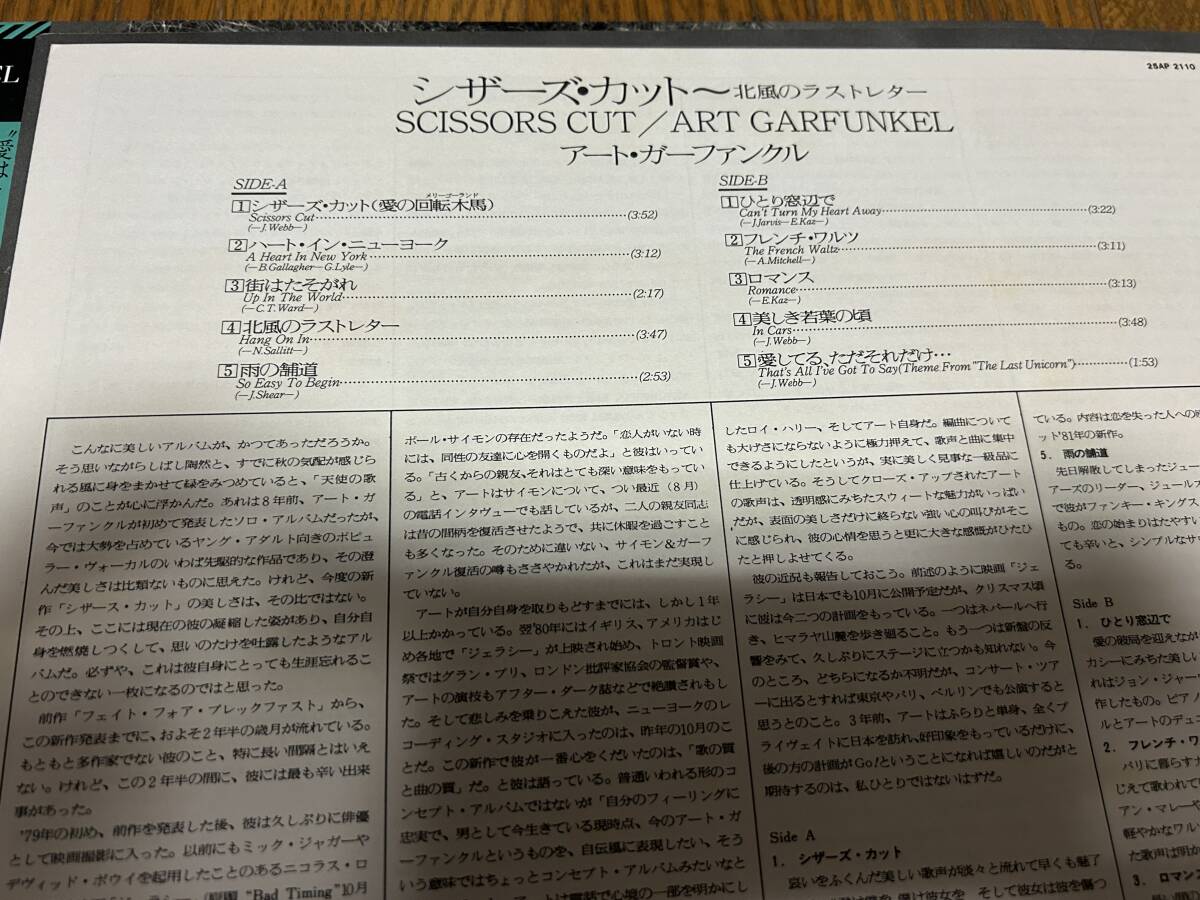 25AP 2110
シザーズ・カット〜北風のラストレター
SCISSORS CUT/ART GARFUNKEL
アート・ガーファンクル
SIDE-A
メリーゴーランド
1 シザーズ・カット(愛の回転木馬)
Scissors Cut (3:52)
(—J.Webb—)
2 ハート・イン・ニューヨーク
A Heart In New York (3:12)
(—B.Gallagher—G.Lyle—)
3 街はたそがれ
Up In The World (2:17)
(—C.T.Ward—)
4 北風のラストレター
Hang On In (3:47)
(—N.Sallitt—)
5 雨の舗道
So Easy To Begin (2:53)
(—J.Shear—)
SIDE-B
1 ひとり窓辺で
Can't Turn My Heart Away (3:22)
(—J.Jarvis—E.Kaz—)
2 フレンチ・ワルツ
The French Waltz (3:11)
(—A.Mitchell—)
3 ロマンス
Romance (3:13)
(—E.Kaz—)
4 美しき若葉の頃
In Cars (3:48)
(—J.Webb—)
5 愛してる、ただそれだけ…
That's All I've Got To Say(Theme From "The Last Unicorn") (1:53)
(—J.Webb—)
こんなに美しいアルバムが、かつてあっただろうか。
そう思いながらしばし陶然と、すでに秋の気配が感じら
れる風に身をまかせて緑をみつめていると、「天使の歌
声」のことが心に浮かんだ。あれは8年前、アート・ガ
ーファンクルが初めて発表したソロ・アルバムだったが、
今では大勢を占めているヤング・アダルト向きのポピュ
ラー・ヴォーカルのいわば先駆的な作品であり、その澄
んだ美しさは比類ないものに思えた。けれど、今度の新
作「シザース・カット」の美しさは、その比ではない。
その上、ここには現在の彼の凝縮した姿があり、自分自
身を燃焼しつくして、思いのたけを吐露したようなアル
バムだ。必ずや、これは彼自身にとっても生涯忘れるこ
とのできない一枚になるのではと思った。
前作「フェイト・フォア・ブレックファスト」から、
この新作発表までに、およそ2年半の歳月が流れている。
もともと多作家でない彼のこと、特に長い間隔とはいえ
ない。けれど、この2年半の間に、彼には最も辛い出来
事があった。
'79年の初め、前作を発表した後、彼は久しぶりに俳優
として映画撮影に入った。以前にもミック・ジャガーや
デヴィッド・ボウイを起用したことのあるニコラス・ロ
"Bad Timing"10月
ポール・サイモンの存在だったようだ。「恋人がいない時
には、同性の友達に心を開くものだよ」と彼はいってい
る。「古くからの親友、それはとても深い意味をもってい
る」と、アートはサイモンについて、つい最近(8月)
の電話インタヴューでも話しているが、二人の親友同志
は昔の間柄を復活させたようで、共に休暇を過ごすこと
も多くなった。そのために違いない、サイモン&ガーフ
ァンクル復活の噂もささやかれたが、これはまだ実現し
ていない。
アートが自分自身を取りもどすまでには、しかし1年
以上かかっている。翌'80年にはイギリス、アメリカはじ
め各地で「ジェラシー」が上映され始め、トロント映画
祭ではグラン・プリ、ロンドン批評家協会の監督賞や、
アートの演技もアフター・ダーク誌などで絶讃されもし
た。そして悲しみを乗りこえた彼が、ニューヨークのレ
コーディング・スタジオに入ったのは、昨年の10月のこ
とだ。この新作で彼が一番心をくだいたのは、「歌の質
と曲の質」だ。と彼は語っている。普通いわれる形のコ
ンセプト・アルバムではないが「自分のフィーリングに
忠実で、男として今生きている現時点、今のアート・ガ
ーファンクルというものを、自伝風に表現したい、そう
いう意味ではちょっとコンセプト・アルバムみたいなと
したロイ・ハリー、そしてアート自身だ。編曲について
も大げさにならないように極力押えて、歌声と曲に集中
できるようにしたというが、実に美しく見事な一級品に
仕上げている。そうしてクローズ・アップされたアート
の歌声は、透明感にみちたスウィートな魅力がいっぱい
だが、表面の美しさだけに終らない強い心の叫びがそこ
に感じられ、彼の心情を思うと更に大きな感慨がひたひ
たと押しよせてくる。
彼の近況も報告しておこう。前述のように映画「ジェ
ラシー」は日本でも10月に公開予定だが、クリスマス頃
に彼は今二つの計画をもっている。一つはネパールへ行
き、ヒマラヤ山麓を歩き廻ること。もう一つは新盤の反
響をみて、久しぶりにステージに立つかも知れない。今
のところ、どちらになるか不明だが、コンサート・ツア
ーに出るとすれば東京やパリ、ベルリンでも公演すると
思うとのこと。3年前、アートはふらりと単身、全くプ
ライヴェイトに日本を訪れ、好印象をもっているだけに、
後の方の計画がGo!ということになれば嬉しいのだがと
期待するのは、私ひとりではないはずだ。
Side A
1. シザース・カット
哀いをふくんだ美しい歌声が淡々と流れて早くも魅了
ている。内容は恋を失った人への
ット'81年の新作。
5. 雨の舗道
先日解散してしまったジュー
アーズのリーダー、ジュール
で彼がファンキー・キングス
もの。恋の始まりはたやす
ても辛いと、シンプルなサ
る。
Side B
1. ひとり窓辺で
愛の破局を迎えなが
カシーにみちた美し
れはジョン・ジャー
作したもの。ピアノ
ルとアートのデュ
2. フレンチ・ワ
パリに暮らす
じえて歌われて
アン・マレー
軽やかなワル
た歌声は明か
3. ロマン